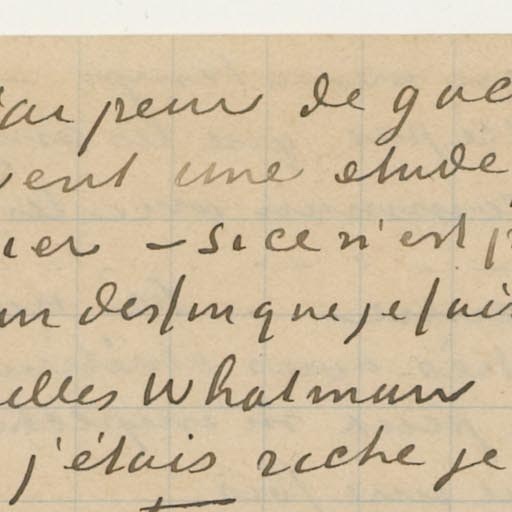 j'ai peur de gac
vent une etude
ier – si ce n'est p
un dessin que je fais
elles Whatman
j'étais riche je